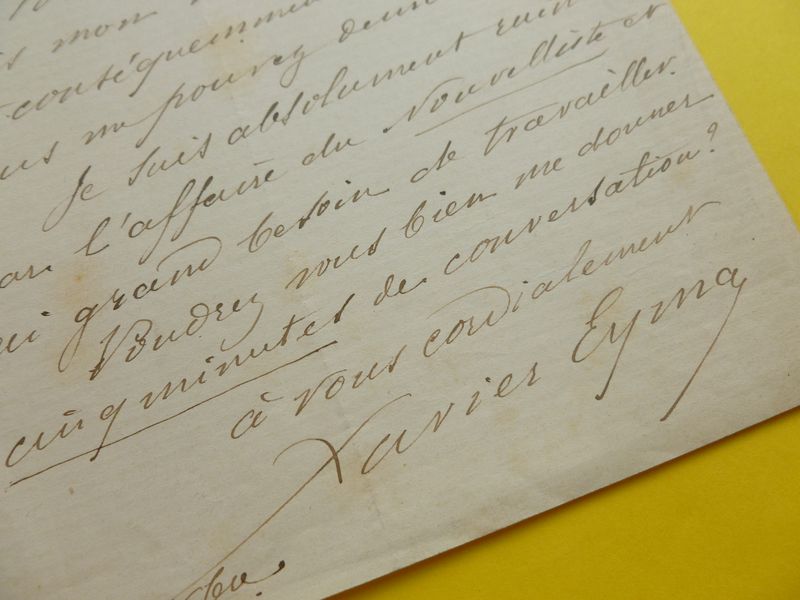 mon
conséquemment
ne pouvez
Je suis absolument
l'affaire du Nouvelliste et
grand besoin de travailler.
Voudrez vous bien me donner
cinq minutes de conversation?
à vous cordialement
Xavier Eyma